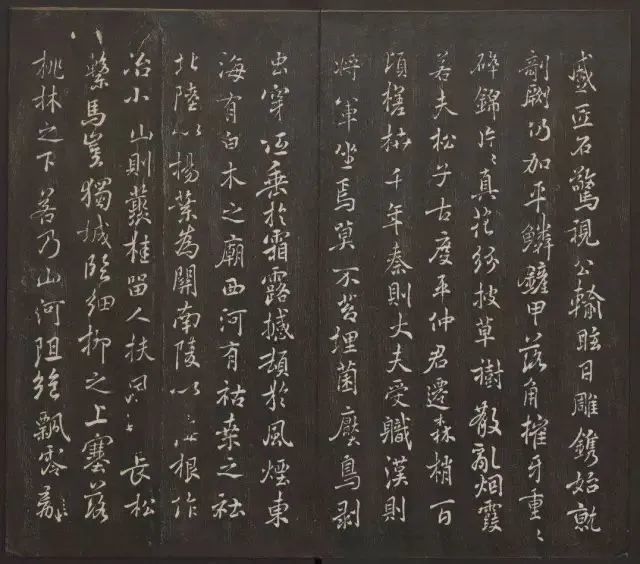 蹙匠石驚視公輸眩目雕鐫始就
剞劂仍加平鱗鏟甲落角摧牙重〻
碎錦片〻真花紛披草樹散亂烟霞
若夫松子古度平仲君遷森梢百
頃槎枿千年秦則大夫受職漢則
將軍坐焉莫不苔埋菌壓鳥剥
虫穿低垂於霜露撼頓於風煙東
海有白木之廟西河有枯桑之社
北陸以楊葉為關南陵以根作
冶小山則叢桂留人扶長松
繫馬豈獨城臨細柳之上塞落
桃林之下若乃山河阻絶飄零離